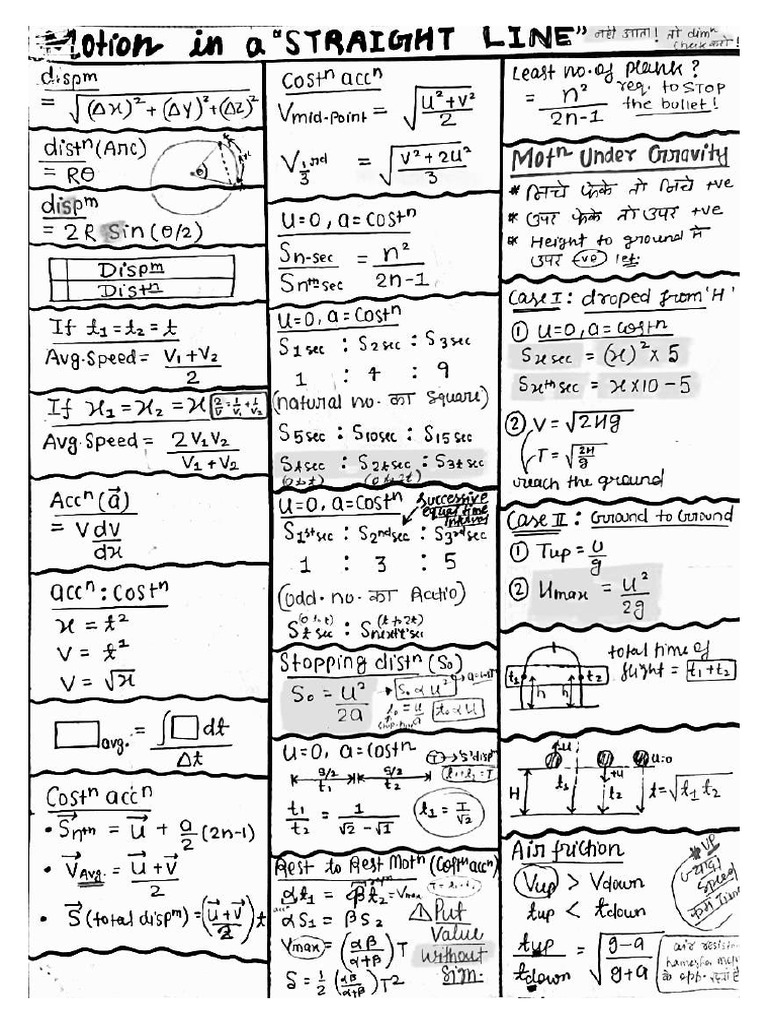 Motion in a "STRAIGHT LINE"
नही आता! तो dimⁿ check करो!
dispm
= √(Δx)² + (Δy)² + (Δz)²
distⁿ (Arc)
= Rθ
θ
dispm
= 2R Sin(θ/2)
Dispm
Distⁿ
If t₁ = t₂ = t
Avg. Speed = V₁+V₂ / 2
If x₁ = x₂ = x 2/V = 1/V₁ + 1/V₂
Avg. Speed = 2V₁V₂ / V₁+V₂
Accⁿ (a⃗)
= V dv / dx
accⁿ : Costⁿ
x = t²
V = t¹
V = √x
□ avg. = ∫□ dt / Δt
Costⁿ accⁿ
• S⃗nth = u⃗ + a/2 (2n-1)
• V⃗Avg. = u⃗+v⃗ / 2
• S⃗ (total dispm) = (u⃗+v⃗ / 2) t
Costⁿ accⁿ
Vmid-point = √(u²+v² / 2)
V 1/3rd = √(v²+2u² / 3)
u=0, a=costⁿ
Sn-sec / Snth sec = n² / 2n-1
u=0, a=costⁿ
S1sec : S2sec : S3sec
1 : 4 : 9
(natural no. का square)
S5sec : S10sec : S15sec
Stsec : S2tsec : S3tsec
(0 to t) (0 to 2t)
u=0, a=costⁿ
successive equal time interval
S1st sec : S2nd sec : S3rd sec
1 : 3 : 5
(odd. no. का Ratio)
(0 to t) (t to 2t)
St sec : Snext t sec
Stopping distⁿ (S₀)
S₀ = u² / 2a
S₀ ∝ u²
a=cost
t₀ = u/a
t₀ ∝ u
u=0, a=costⁿ
T → 'S' dispm
t₁+t₂=T
s/2 s/2
t₁ t₂
t₁ / t₂ = 1 / √2 - √1
t₁ = T / √2
Rest to Rest Motⁿ (Costⁿ accⁿ)
αt₁ = βt₂ = Vmax
T = t₁+t₂
αS₁ = βS₂
Vmax = (αβ / α+β) T
S = 1/2 (αβ / α+β) T²
! Put
value
without
sign.
Least no. of plank?
= n² / 2n-1
req. to STOP
the bullet!
Motⁿ Under Gravity
* निचे फेके तो निचे +ve
* उपर फेके तो उपर +ve
* Height to ground मे
उपर +ve let.
Case I : droped from 'H'
① u=0, a=costⁿ
Sxsec = (x)² × 5
Sxth sec = x×10 - 5
② V = √2Hg
T = √(2H / g)
reach the ground
Case II : Ground to Ground
① Tup = u / g
② Hmax = u² / 2g
t₁ h h t₂
total time of
flight = t₁+t₂
H u +u u=0
t₁ t₂ t=√t₁t₂
Air friction
Vup > Vdown
tup < tdown
tup / tdown = √(g-a / g+a)
* UP
ज्यादा
Speed
कम Time